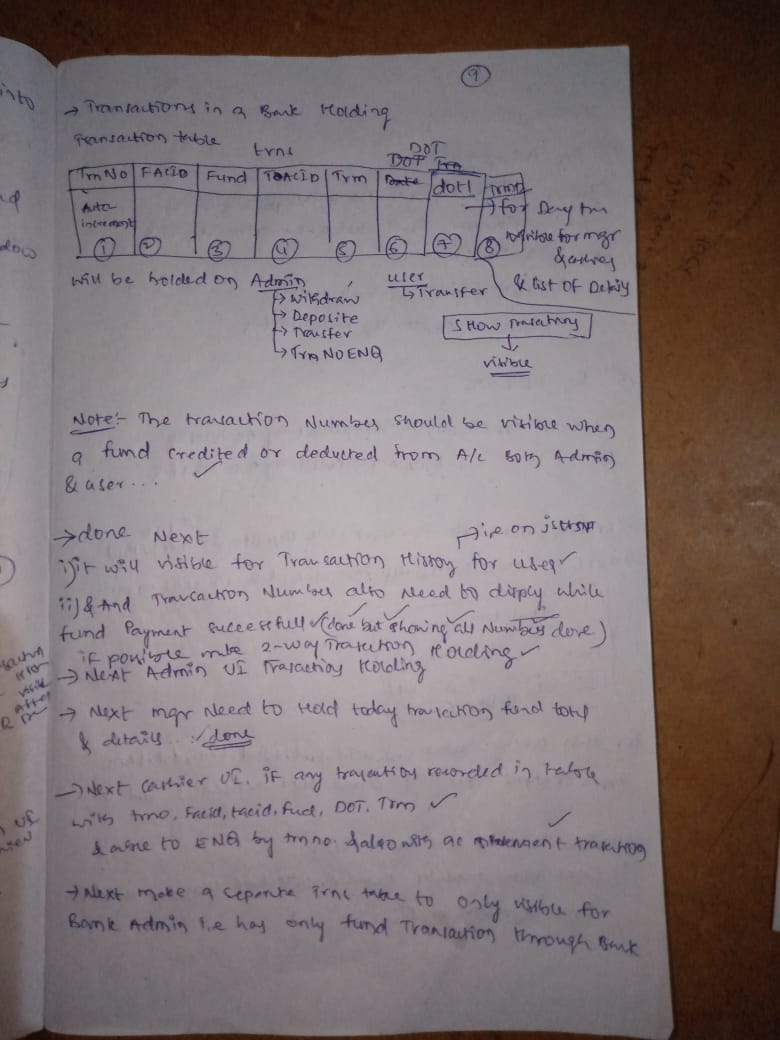 9
→ Transactions in a Bank Holding
Transaction table
trns
DOT
DOT
TrnNo | FACID | Fund | TOACID | Trm | Date | dot1 | trmD
Auto increment
① ② ③ ④ ⑤ ⑥ ⑦ ⑧
→ for Day trn
visible for mgr
& cashier
& List OF Details
will be holded on Admin
→ Withdraw
→ Deposite
→ Transfer
→ Trn NO ENQ
user
↳ Transfer
SHOW Transactions
↓
visible
Note:- The transaction Number should be visible when
a fund credited or deducted from A/c Both Admin
& user... ✓
→ done Next
→ i.e on
i) it will visible for Transaction History for user ✓
ii) & And Transaction Number also need to disply while
fund Payment successfull ✓ (done but showing all Numbers done)
if possible make 2-way Transaction Holding ✓
→ Next Admin UI Transaction Holding
→ Next mgr Need to Hold today transaction fund total
& details.. ✓ done
→ Next Cashier UI. if any transaction recorded in table
with trno, Facid, tacid, fud, DOT, Trm ✓
& able to ENQ by trnno. & also with ac statement transaction ✓
→ Next make a seperate trns table to only visible for
Bank Admin i.e has only fund Transaction through Bank